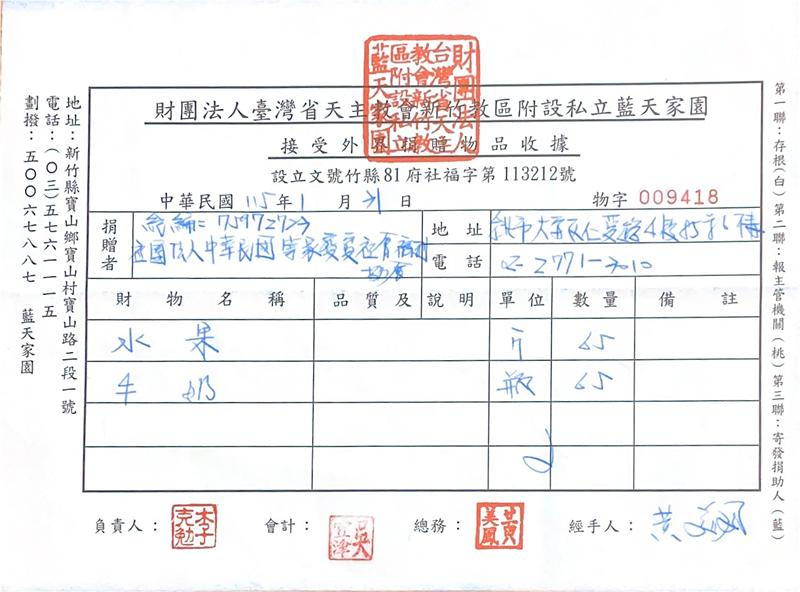 財團法人台灣省天主教會新竹教區附設私立藍天家園
財團法人臺灣省天主教會新竹教區附設私立藍天家園
接受外界捐贈物品收據
設立文號竹縣81府社福字第113212號
中華民國 115年 1 月 21 日
物字 009418
捐贈者
統編:
社團法人中華民國
協會
地址
大安區仁愛路4段
6樓
電話
02-2771-
財物名稱 品質及說明 單位 數量 備註
水果 斤 65
牛奶 瓶 65
負責人: 李子克勉
會計: 吳宣津
總務: 黃美鳳
經手人: 黃
地址:新竹縣寶山鄉寶山村寶山路二段一號
電話:(○三)五七六一一一五
劃撥:五○○六七八八七 藍天家園
第一聯:存根(白)第二聯:報主管機關(桃)第三聯:寄發捐助人(藍)